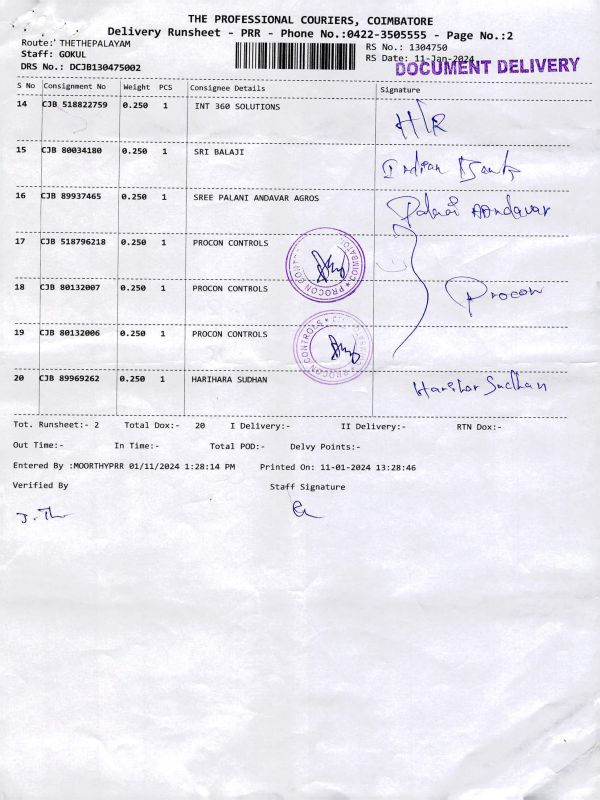 THE PROFESSIONAL COURIERS, COIMBATORE
Delivery Runsheet - PRR - Phone No.:0422-3505555 - Page No.:2
Route: THETHEPALAYAM
RS No.: 1304750
Staff: GOKUL
RS Date: 11-Jan-2024
DRS No.: DCJB130475002
DOCUMENT DELIVERY
S No Consignment No Weight PCS Consignee Details Signature
14 CJB 518822759 0.250 1 INT 360 SOLUTIONS
15 CJB 80034180 0.250 1 SRI BALAJI Indian Bank
16 CJB 89937465 0.250 1 SREE PALANI ANDAVAR AGROS Palani Andavar
17 CJB 518796218 0.250 1 PROCON CONTROLS
18 CJB 80132007 0.250 1 PROCON CONTROLS Procon
19 CJB 80132006 0.250 1 PROCON CONTROLS
20 CJB 89969262 0.250 1 HARIHARA SUDHAN Harihar Sudhan
Tot. Runsheet:- 2 Total Dox:- 20 I Delivery:- II Delivery:- RTN Dox:-
Out Time:- In Time:- Total POD:- Delvy Points:-
Entered By :MOORTHYPRR 01/11/2024 1:28:14 PM Printed On: 11-01-2024 13:28:46
Verified By Staff Signature